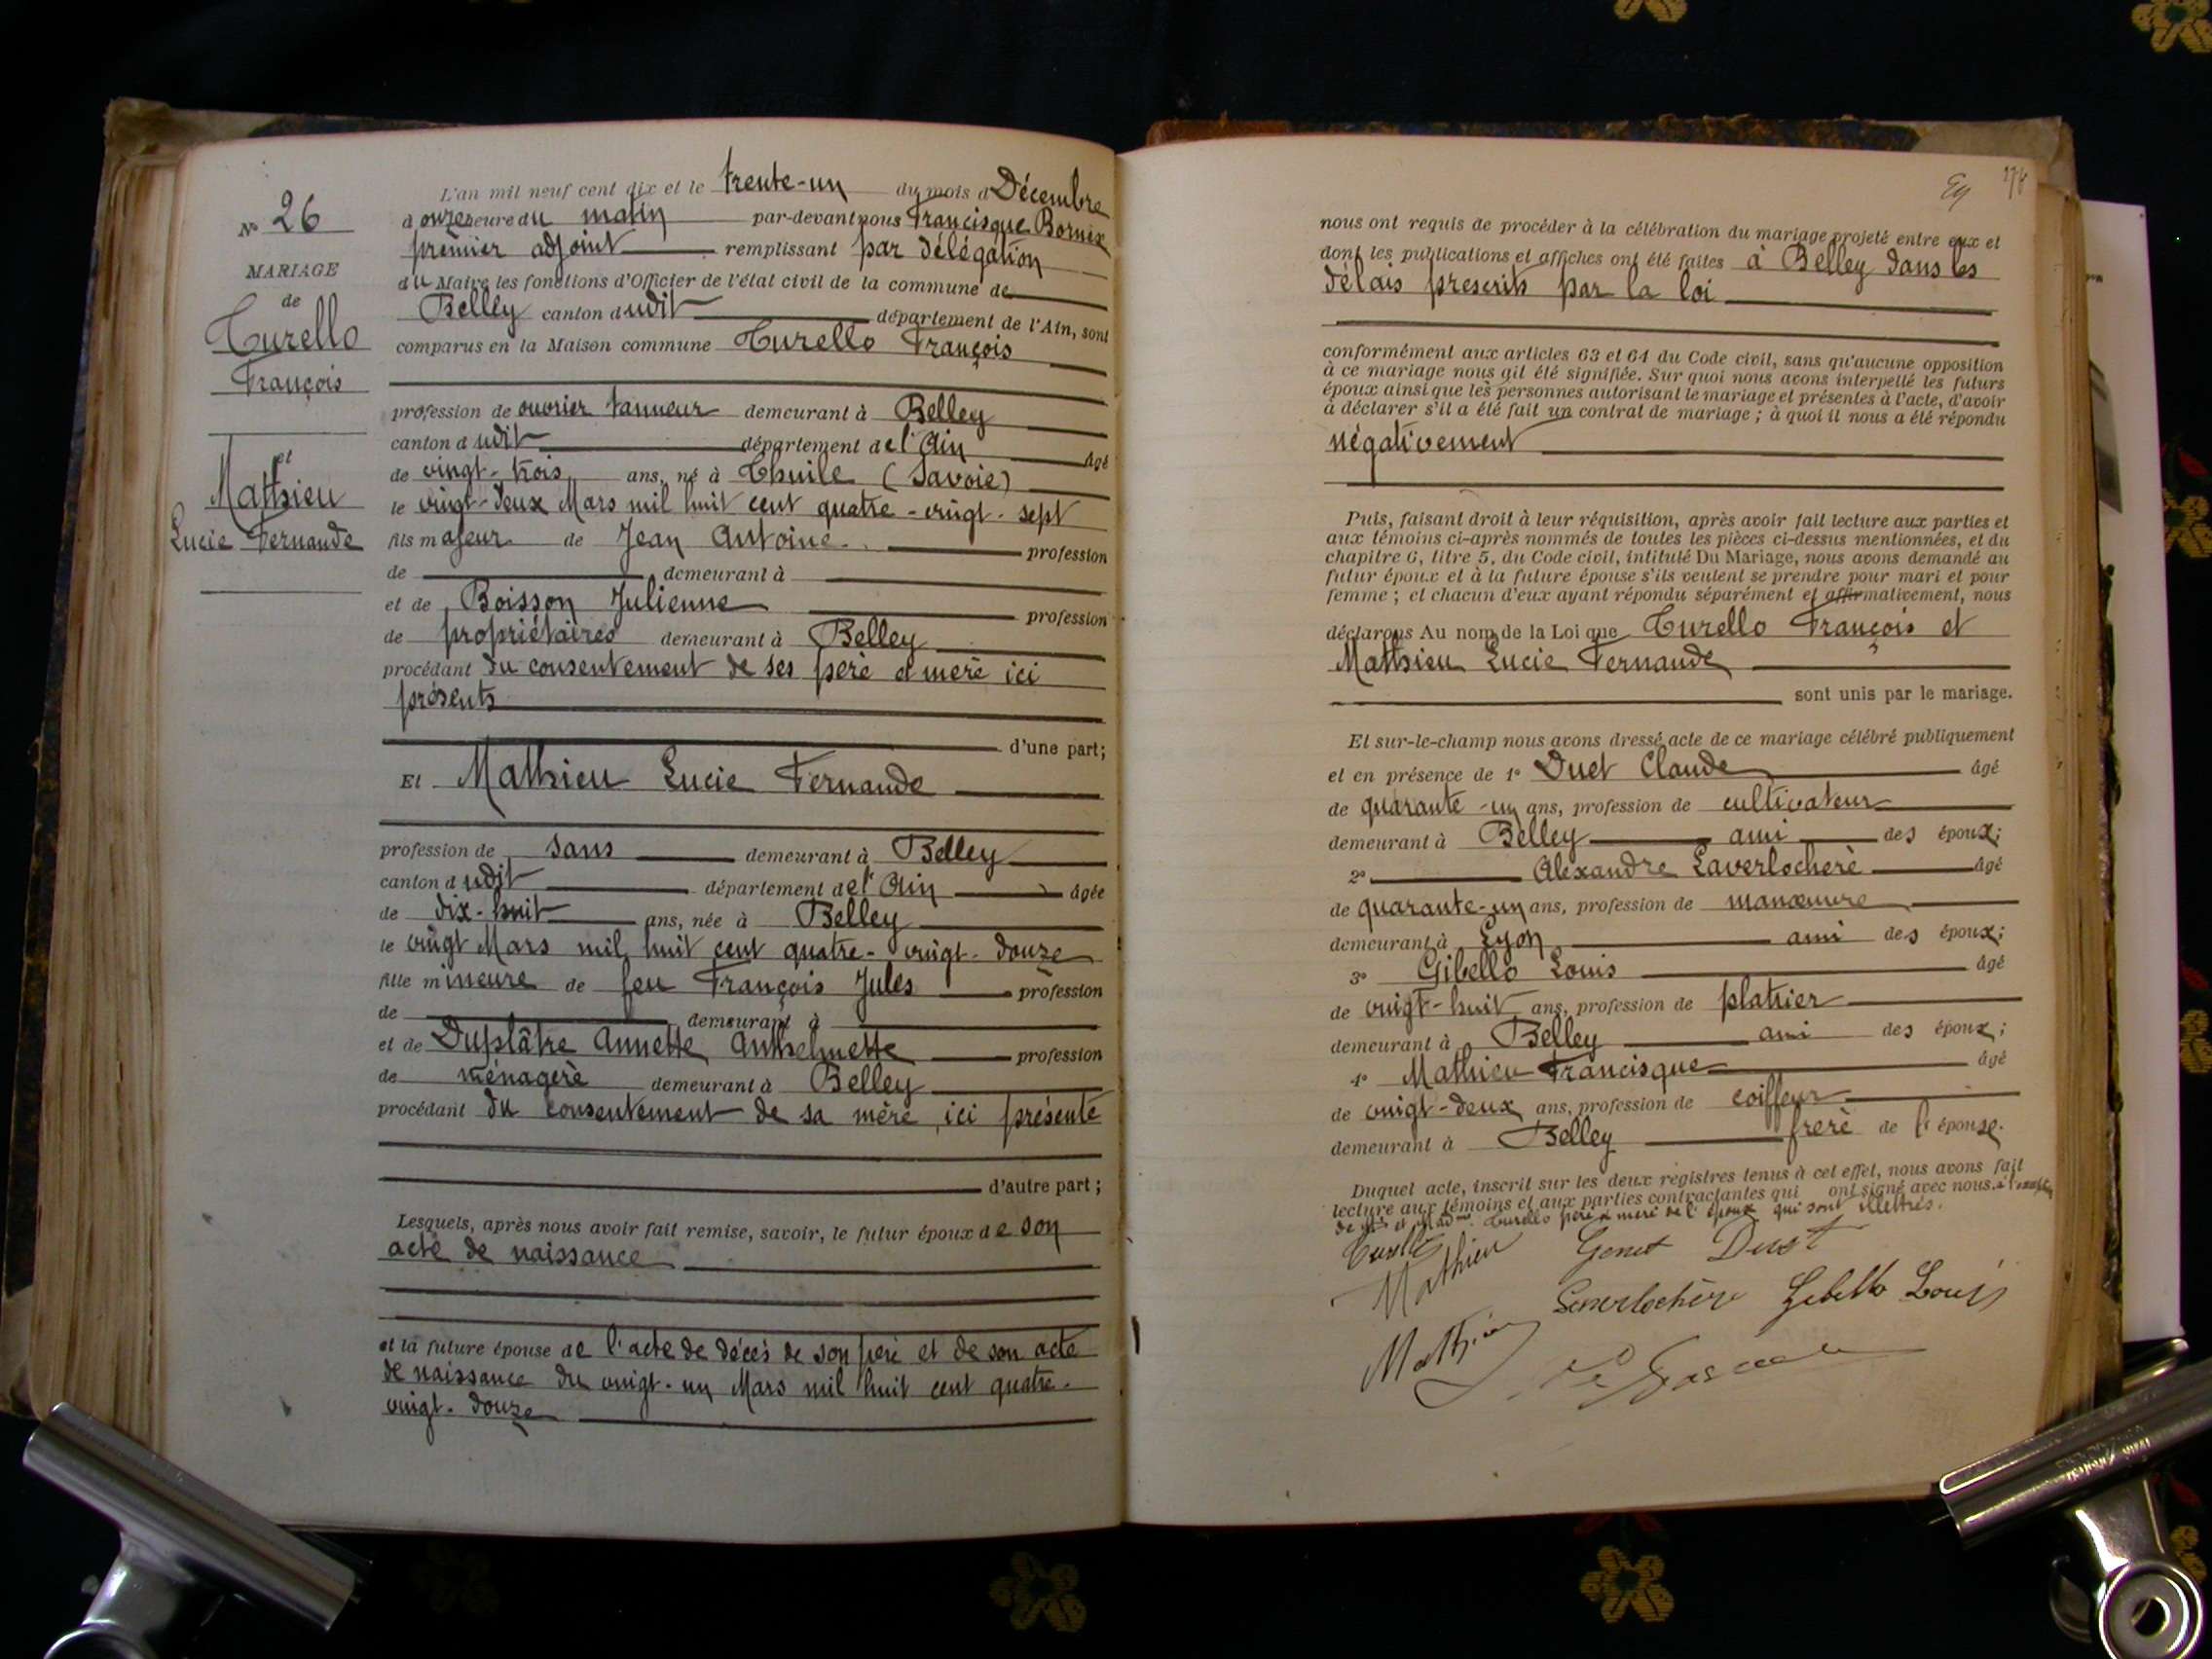 N° 26
MARIAGE
de
Turello
François
et
Mathieu
Lucie Fernande
L'an mil neuf cent dix et le trente-un du mois d Décembre
à onze heure du matin par-devant nous Francisque Bornex
premier adjoint remplissant par délégation
du Maire les fonctions d'Officier de l'état civil de la commune de
Belley canton dudit département de l'Ain, sont
comparus en la Maison commune Turello François
profession de ouvrier tanneur demeurant à Belley
canton dudit département de l'Ain âgé
de vingt-trois ans, né à Thuile (Savoie)
le vingt-deux Mars mil huit cent quatre-vingt-sept
fils majeur de Jean Antoine profession
de demeurant à
et de Boisson Julienne profession
de propriétaires demeurant à Belley
procédant du consentement de ses père et mère ici
présents
d'une part;
Et Mathieu Lucie Fernande
profession de sans demeurant à Belley
canton dudit département de l'Ain âgée
de dix-huit ans, née à Belley
le vingt Mars mil huit cent quatre-vingt-douze
fille mineure de feu François Jules profession
de demeurant à
et de Duplâtre Annette Anthelmette profession
de ménagère demeurant à Belley
procédant du consentement de sa mère, ici présente
d'autre part;
Lesquels, après nous avoir fait remise, savoir, le futur époux de son
acte de naissance
et la future épouse de l'acte de décès de son père et de son acte
de naissance du vingt-un Mars mil huit cent quatre-
vingt-douze
nous ont requis de procéder à la célébration du mariage projeté entre eux et
dont les publications et affiches ont été faites à Belley dans les
délais prescrits par la loi
conformément aux articles 63 et 64 du Code civil, sans qu'aucune opposition
à ce mariage nous ait été signifiée. Sur quoi nous avons interpellé les futurs
époux ainsi que les personnes autorisant le mariage et présentes à l'acte, d'avoir
à déclarer s'il a été fait un contrat de mariage; à quoi il nous a été répondu
négativement
Puis, faisant droit à leur réquisition, après avoir fait lecture aux parties et
aux témoins ci-après nommés de toutes les pièces ci-dessus mentionnées, et du
chapitre 6, titre 5, du Code civil, intitulé Du Mariage, nous avons demandé au
futur époux et à la future épouse s'ils veulent se prendre pour mari et pour
femme; et chacun d'eux ayant répondu séparément et affirmativement, nous
déclarons Au nom de la Loi que Turello François et
Mathieu Lucie Fernande
sont unis par le mariage.
Et sur-le-champ nous avons dressé acte de ce mariage célébré publiquement
et en présence de 1° Duet Claude âgé
de quarante-un ans, profession de cultivateur
demeurant à Belley ami des époux;
2° Alexandre Laverlochère âgé
de quarante-un ans, profession de manœuvre
demeurant à Lyon ami des époux;
3° Gibello Louis âgé
de vingt-huit ans, profession de platrier
demeurant à Belley ami des époux;
4° Mathieu Francisque âgé
de vingt-deux ans, profession de coiffeur
demeurant à Belley frère de l'épouse.
Duquel acte, inscrit sur les deux registres tenus à cet effet, nous avons fait
lecture aux témoins et aux parties contractantes qui ont signé avec nous.
Turello père et mère de l'époux qui sont illettrés.
Turello
Mathieu
Duet
Laverlochère Gibello Louis
Mathieu